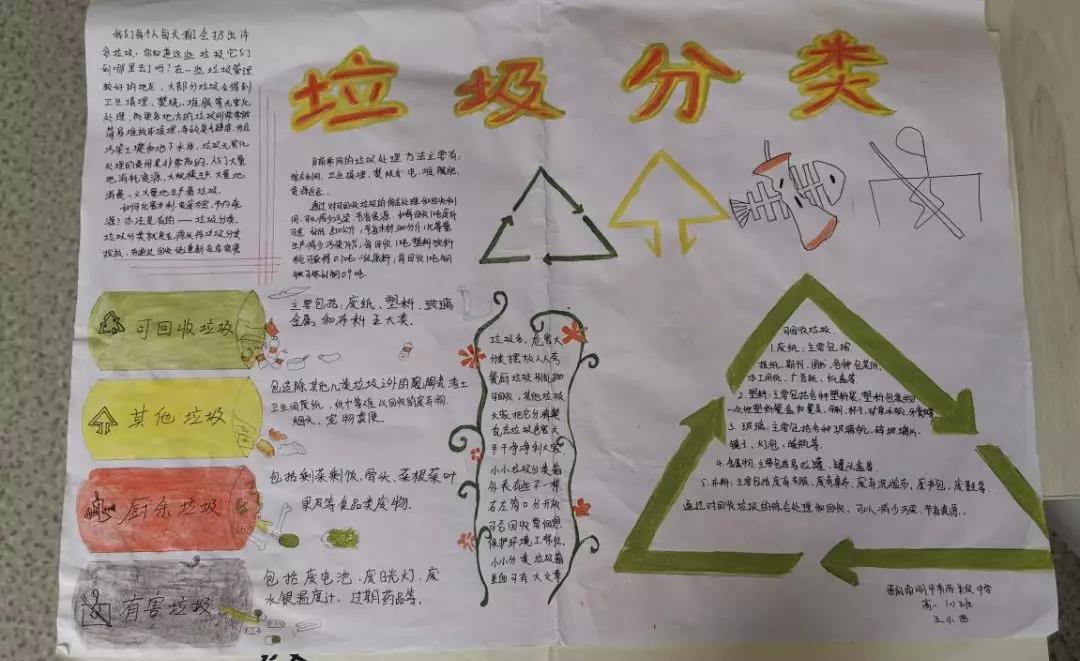 垃圾分类
我们每个人每天都会扔出许
多垃圾，你知道这些垃圾它们
到哪里去了吗？在一些垃圾管理
较好的地区，大部分垃圾会得到
卫生填埋、焚烧、堆肥等无害化
处理，而更多地方的垃圾则常常被
简易堆放或填埋，导致臭气肆虐，并且
污染土壤和地下水体，垃圾无害化
处理的费用是非常高的，人们大量
地消耗资源，大规模生产，大量地
消费，又大量地生产着垃圾。
办法是有的——垃圾分类
垃圾分类就是在源头将垃圾分类
投放
目前常用的垃圾处理方法主要有：
综合利用、卫生填埋、焚烧发电、堆肥
资源返还。
通过对可回收垃圾的综合处理和回收利
用，可以减少污染，节省资源
可回收垃圾
主要包括：废纸、塑料、玻璃
金属和布料五大类。
其他垃圾
包括除其他几类垃圾之外的砖瓦陶瓷渣土
卫生间废纸、纸巾等难以回收的废弃物
烟头、宠物粪便。
厨余垃圾
包括剩菜剩饭、骨头、菜根菜叶
果皮等食品类废物.
有害垃圾
包括废电池、废日光灯、废
水银温度计、过期药品等。
垃圾多，危害大
分类摆放人人夸
餐厨垃圾别乱抛
可回收，其他垃圾
大家把它分清楚
乱丢垃圾危害大
干干净净利大家
小小垃圾分类箱
外表有些不一样
右左两口分开放
可否回收要细想
保护环境工作忙
小小分类垃圾箱
里面可有大文章
可回收垃圾.
1.废纸：主要包括
报纸、期刊、图书、各种包装纸、
办公用纸、广告纸、纸盒等.
2.塑料：主要包括各种塑料袋、塑料包装物
一次性塑料餐盒和餐具、牙刷、杯子、矿泉水瓶、牙膏皮等
3.玻璃：主要包括各种玻璃瓶、碎玻璃片、
镜子、灯泡、暖瓶等.
4.金属物：主要包括易拉罐、罐头盒等.
5.布料：主要包括废弃衣服、废弃桌布、废弃洗脸巾、废书包、废鞋等.
通过对可回收垃圾的综合处理和回收，可以减少污染，节省资源。
高一(1)班